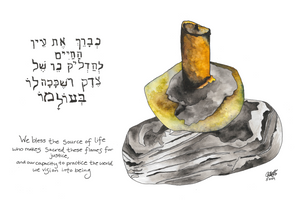 נברך את עין
החיים
להדליק נר של
צדק
We bless the source of life
who makes Sacred these flames for
justice,
and our capacity to practice the world
we vision into being